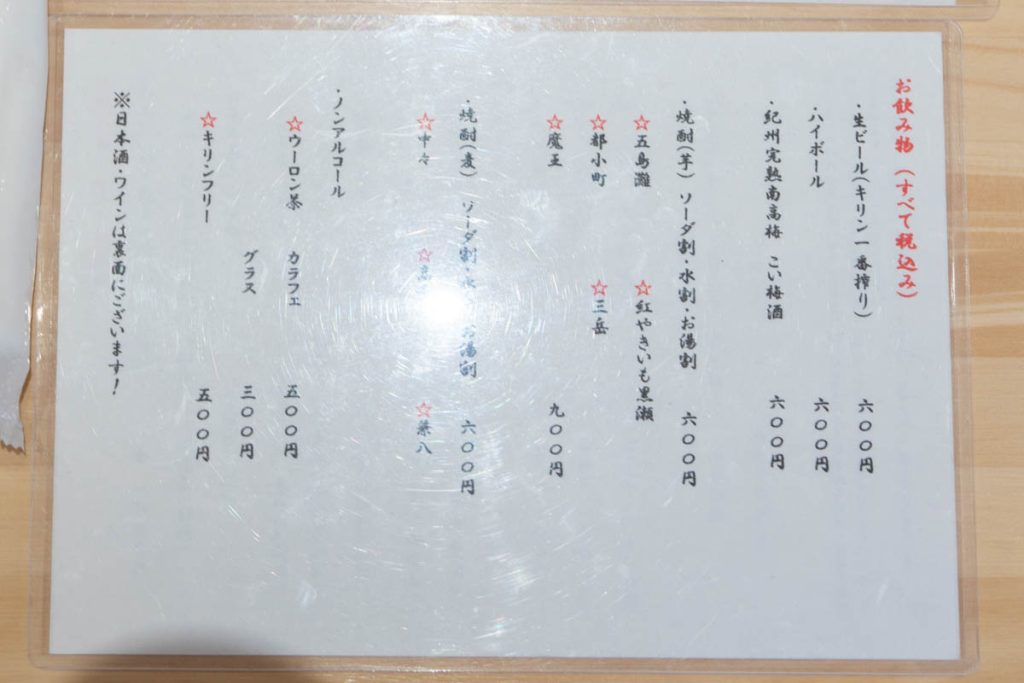 お飲み物（すべて税込み）
・生ビール（キリン一番搾り） 六〇〇円
・ハイボール 六〇〇円
・紀州完熟南高梅 こい梅酒 六〇〇円
・焼酎（芋） ソーダ割・水割・お湯割 六〇〇円
☆五島灘 ☆紅やきいも黒瀬
☆都小町 ☆三岳
☆魔王 九〇〇円
・焼酎（麦） ソーダ割・水 お湯割 六〇〇円
☆中々 ☆ ☆兼八
・ノンアルコール
☆ウーロン茶 カラフェ 五〇〇円
グラス 三〇〇円
☆キリンフリー 五〇〇円
※日本酒・ワインは裏面にございます！